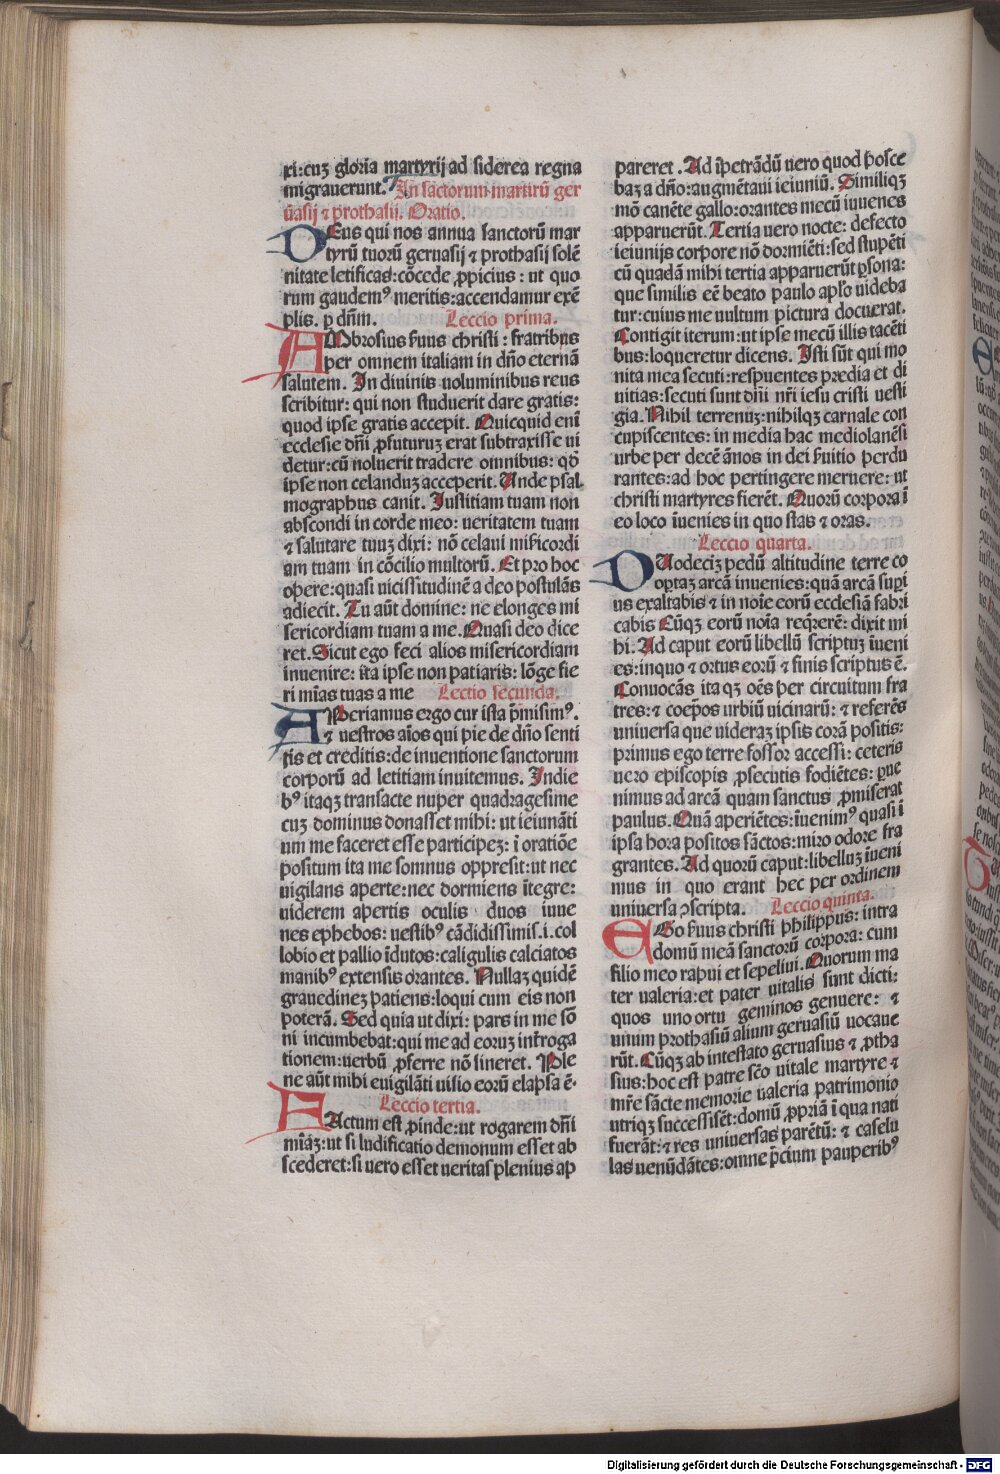 xi:cuʒ gloria martyrij ad siderea regna
migrauerunt. In sāctorum martirū ger
uasij ⁊ prothasij. Oratio.
DEus qui nos annua sanctorū mar
tyrū tuorū geruasij ⁊ prothasij solē
nitate letificas:cōcede ꝓpicius: ut quo
rum gaudemꝰ meritis:accendamur exē
plis. ꝑ dn̄m. Leccio prima.
AMbrosius ẜuus christi: fratribus
per omnem italiam in dn̄o eternā
salutem. In diuinis uoluminibus reus
scribitur: qui non studuerit dare gratis:
quod ipse gratis accepit. Quicquid eni
ecclesie dn̄i ꝓfuturuʒ erat subtraxisse ui
detur:cū noluerit tradere omnibus: qđ
ipse non celanduʒ acceperit. Unde psal
mographus canit. Iustitiam tuam non
abscondi in corde meo: ueritatem tuam
⁊ salutare tuuʒ dixi: nō celaui miẜicordi
am tuam in cōcilio multorū. Et pro hoc
opere:quasi uicissitudinē a deo postulās
adiecit. Tu aūt domine: ne elonges mi
sericordiam tuam a me. Quasi deo dice
ret. Sicut ego feci alios misericordiam
inuenire: ita ipse non patiaris: lōge fie
ri mīas tuas a me Lectio secunda.
APeriamus ergo cur ista p̄misimꝰ.
⁊ uestros aīos qui pie de dn̄o senti
tis et creditis:de inuentione sanctorum
corporū ad letitiam inuitemus. In die
bꝰ itaqʒ transacte nuper quadragesime
cuʒ dominus donasset mihi: ut ieiunāti
um me faceret esse participeʒ: ī oratiōe
positum ita me somnus oppresit:ut nec
uigilans aperte:nec dormiens ītegre:
uiderem apertis oculis duos iuue
nes ephebos: uestibꝰ cādidissimis.i.col
lobio et pallio īdutos:caligulis calciatos
manibꝰ extensis orantes. Nullaʒ quidē
grauedineʒ patiens:loqui cum eis non
poterā. Sed quia ut dixi: pars in me sō
ni incumbebat:qui me ad eoruʒ int̄roga
tionem:uerbū ꝓferre nō sineret. Ple
ne aūt mihi euigilāti uisio eorū elapsa ē.
Leccio tertia.
FActum est ꝓinde:ut rogarem dn̄i
mīāʒ:ut si ludificatio demonum esset ab
scederet:si uero esset ueritas plenius ap
pareret. Ad īpetrādū uero quod posce
baʒ a dn̄o:augmētaui ieiuniū. Similiqʒ
mō canēte gallo:orantes mecū iuuenes
apparuerūt. Tertia uero nocte: defecto
ieiunijs corpore nō dormiēti:sed stupēti
cū quadā mihi tertia apparuerūt ꝑsona:
que similis eē beato paulo aplo uideba
tur:cuius me uultum pictura docuerat.
Contigit iterum:ut ipse mecū illis tacēti
bus:loqueretur dicens. Isti sūt qui mo
nita mea secuti:respuentes predia et di
uitias:secuti sunt dn̄i nr̄i iesu cristi uesti
gia. Nihil terrenuʒ:nihilqʒ carnale con
cupiscentes: in media hac mediolanēsi
urbe per decē ānos in dei ẜuitio perdu
rantes:ad hoc pertingere meruere: ut
christi martyres fierēt. Quorū corpora ī
eo loco īuenies in quo stas ⁊ oras.
Leccio quarta.
DUodeciʒ pedū altitudine terre co
optaʒ arcā inuenies:quā arcā suꝑi
us exaltabis ⁊ in noīe eorū ecclesiā fabri
cabis Cūqʒ eorū noīa reqrerē: dixit mi
hi. Ad caput eorū libellū scriptuʒ īueni
es:inquo ⁊ ortus eorū ⁊ finis scriptus ē.
Conuocās ita qʒ oēs per circuitum fra
tres:⁊ coep̄os urbiū uicinarū: ⁊ referēs
uniuersa que uideraʒ ipsis corā positis:
primus ego terre fossor accessi: ceteris
uero episcopis ꝓsecutis fodiētes: ꝑue
nimus ad arcā quam sanctus ꝓmiserat
paulus. Quā aperiētes:īuenimꝰ quasi ī
ipsa hora positos sāctos:miro odore fra
grantes. Ad quorū caput:libelluʒ īueni
mus in quo erant hec per ordinem
uniuersa ꝯscripta. Leccio quinta.
EGo ẜuus christi philippus: intra
domū meā sanctorū corpora: cum
filio meo rapui et sepeliui. Quorum ma
ter ualeria:et pater uitalis sunt dicti:
quos uno ortu geminos genuere: ⁊
unum prothasiū alium geruasiū uocaue
rūt. Cūqʒ ab intestato geruasius ⁊ ꝓtha
sius:hoc est patre sc̄o uitale martyre ⁊
mr̄e sācte memorie ualeria patrimonio
utriqʒ successisēt:domū ꝓpriā ī qua nati
fuerāt:⁊ res uniuersas parētū: ⁊ casesu
las uenūdātes:omne p̄cium pauperibꝰ
Digitalisierung gefördert durch die Deutsche Forschungsgemeinschaft - DFG